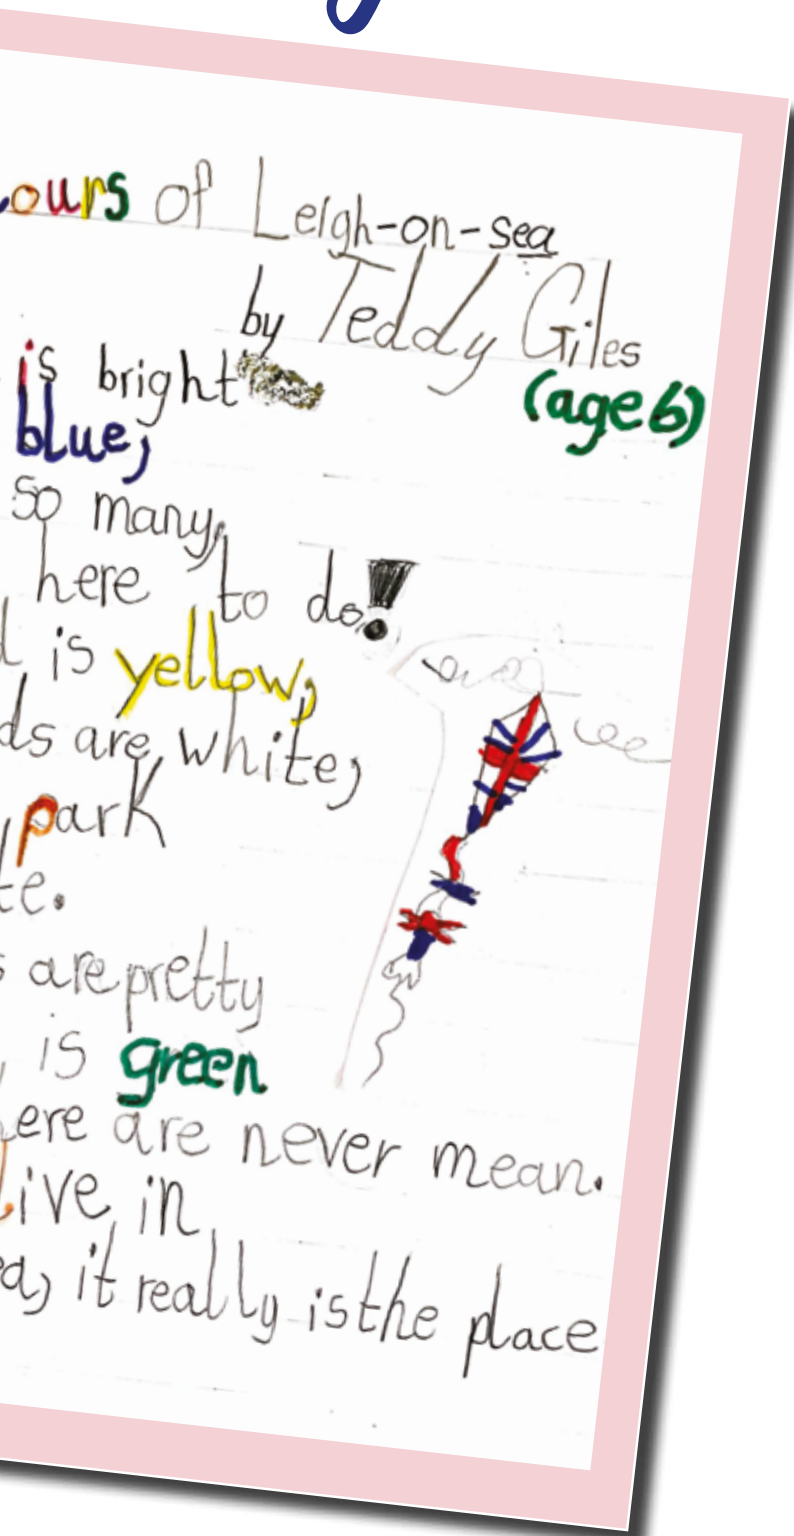 ours of Leigh-on-sea
by Teddy Giles
(age 6)
is bright
blue,
so many,
here to do!
is yellow,
are, white,
park
are pretty
is green
are never mean.
live in
it really is the place